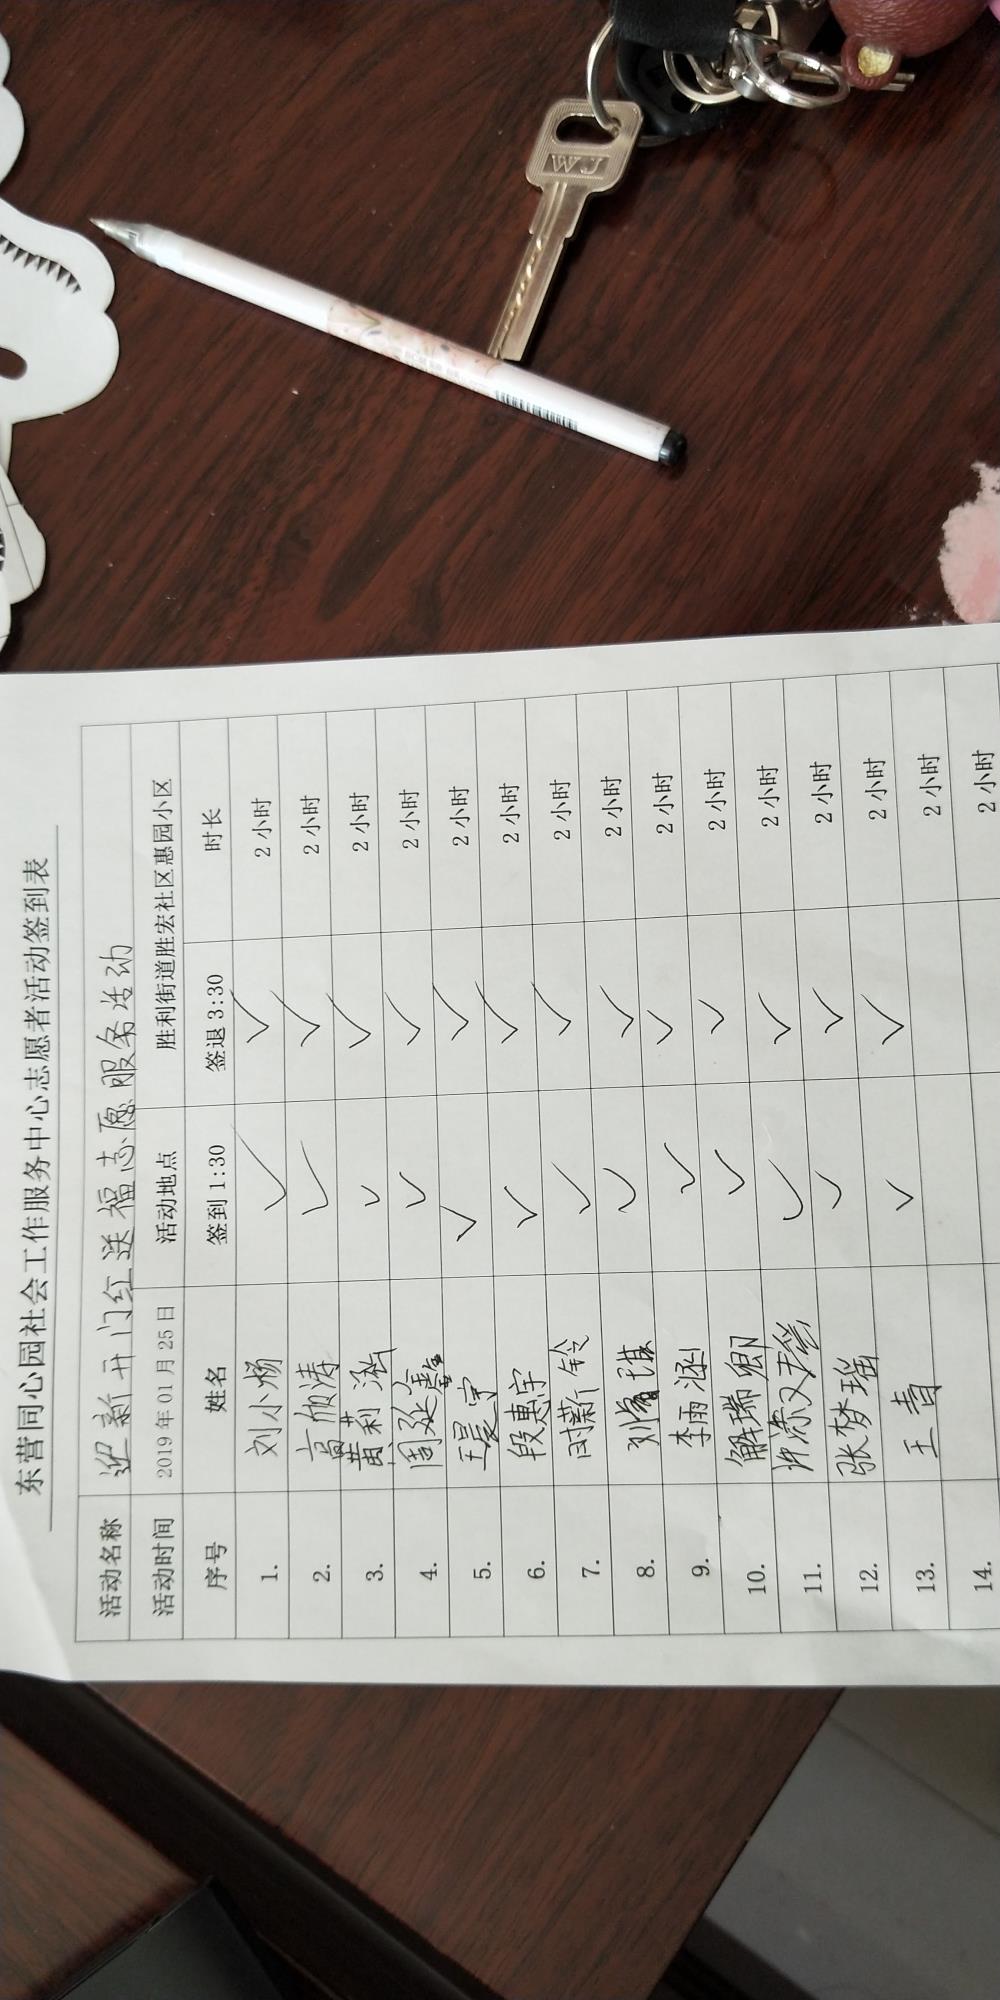 东营同心园社会工作服务中心志愿者活动签到表
活动名称 迎新开门红送福志愿服务活动
活动时间 2019年01月25日 活动地点 胜利街道胜宏社区惠园小区
序号 姓名 签到1:30 签退3:30 时长
1. 刘小杨 ✓ ✓ 2小时
2. 高伽涛 ✓ ✓ 2小时
3. 黄莉 ✓ ✓ 2小时
4. 周延鑫 ✓ ✓ 2小时
5. 王晨宇 ✓ ✓ 2小时
6. 段惠宇 ✓ ✓ 2小时
7. 时薪铃 ✓ ✓ 2小时
8. 刘 琪 ✓ ✓ 2小时
9. 李雨涵 ✓ ✓ 2小时
10. 解瑞卿 ✓ ✓ 2小时
11. ✓ ✓ 2小时
12. 张梦瑶 ✓ ✓ 2小时
13. 王青 ✓ ✓ 2小时
14. 2小时
WJ